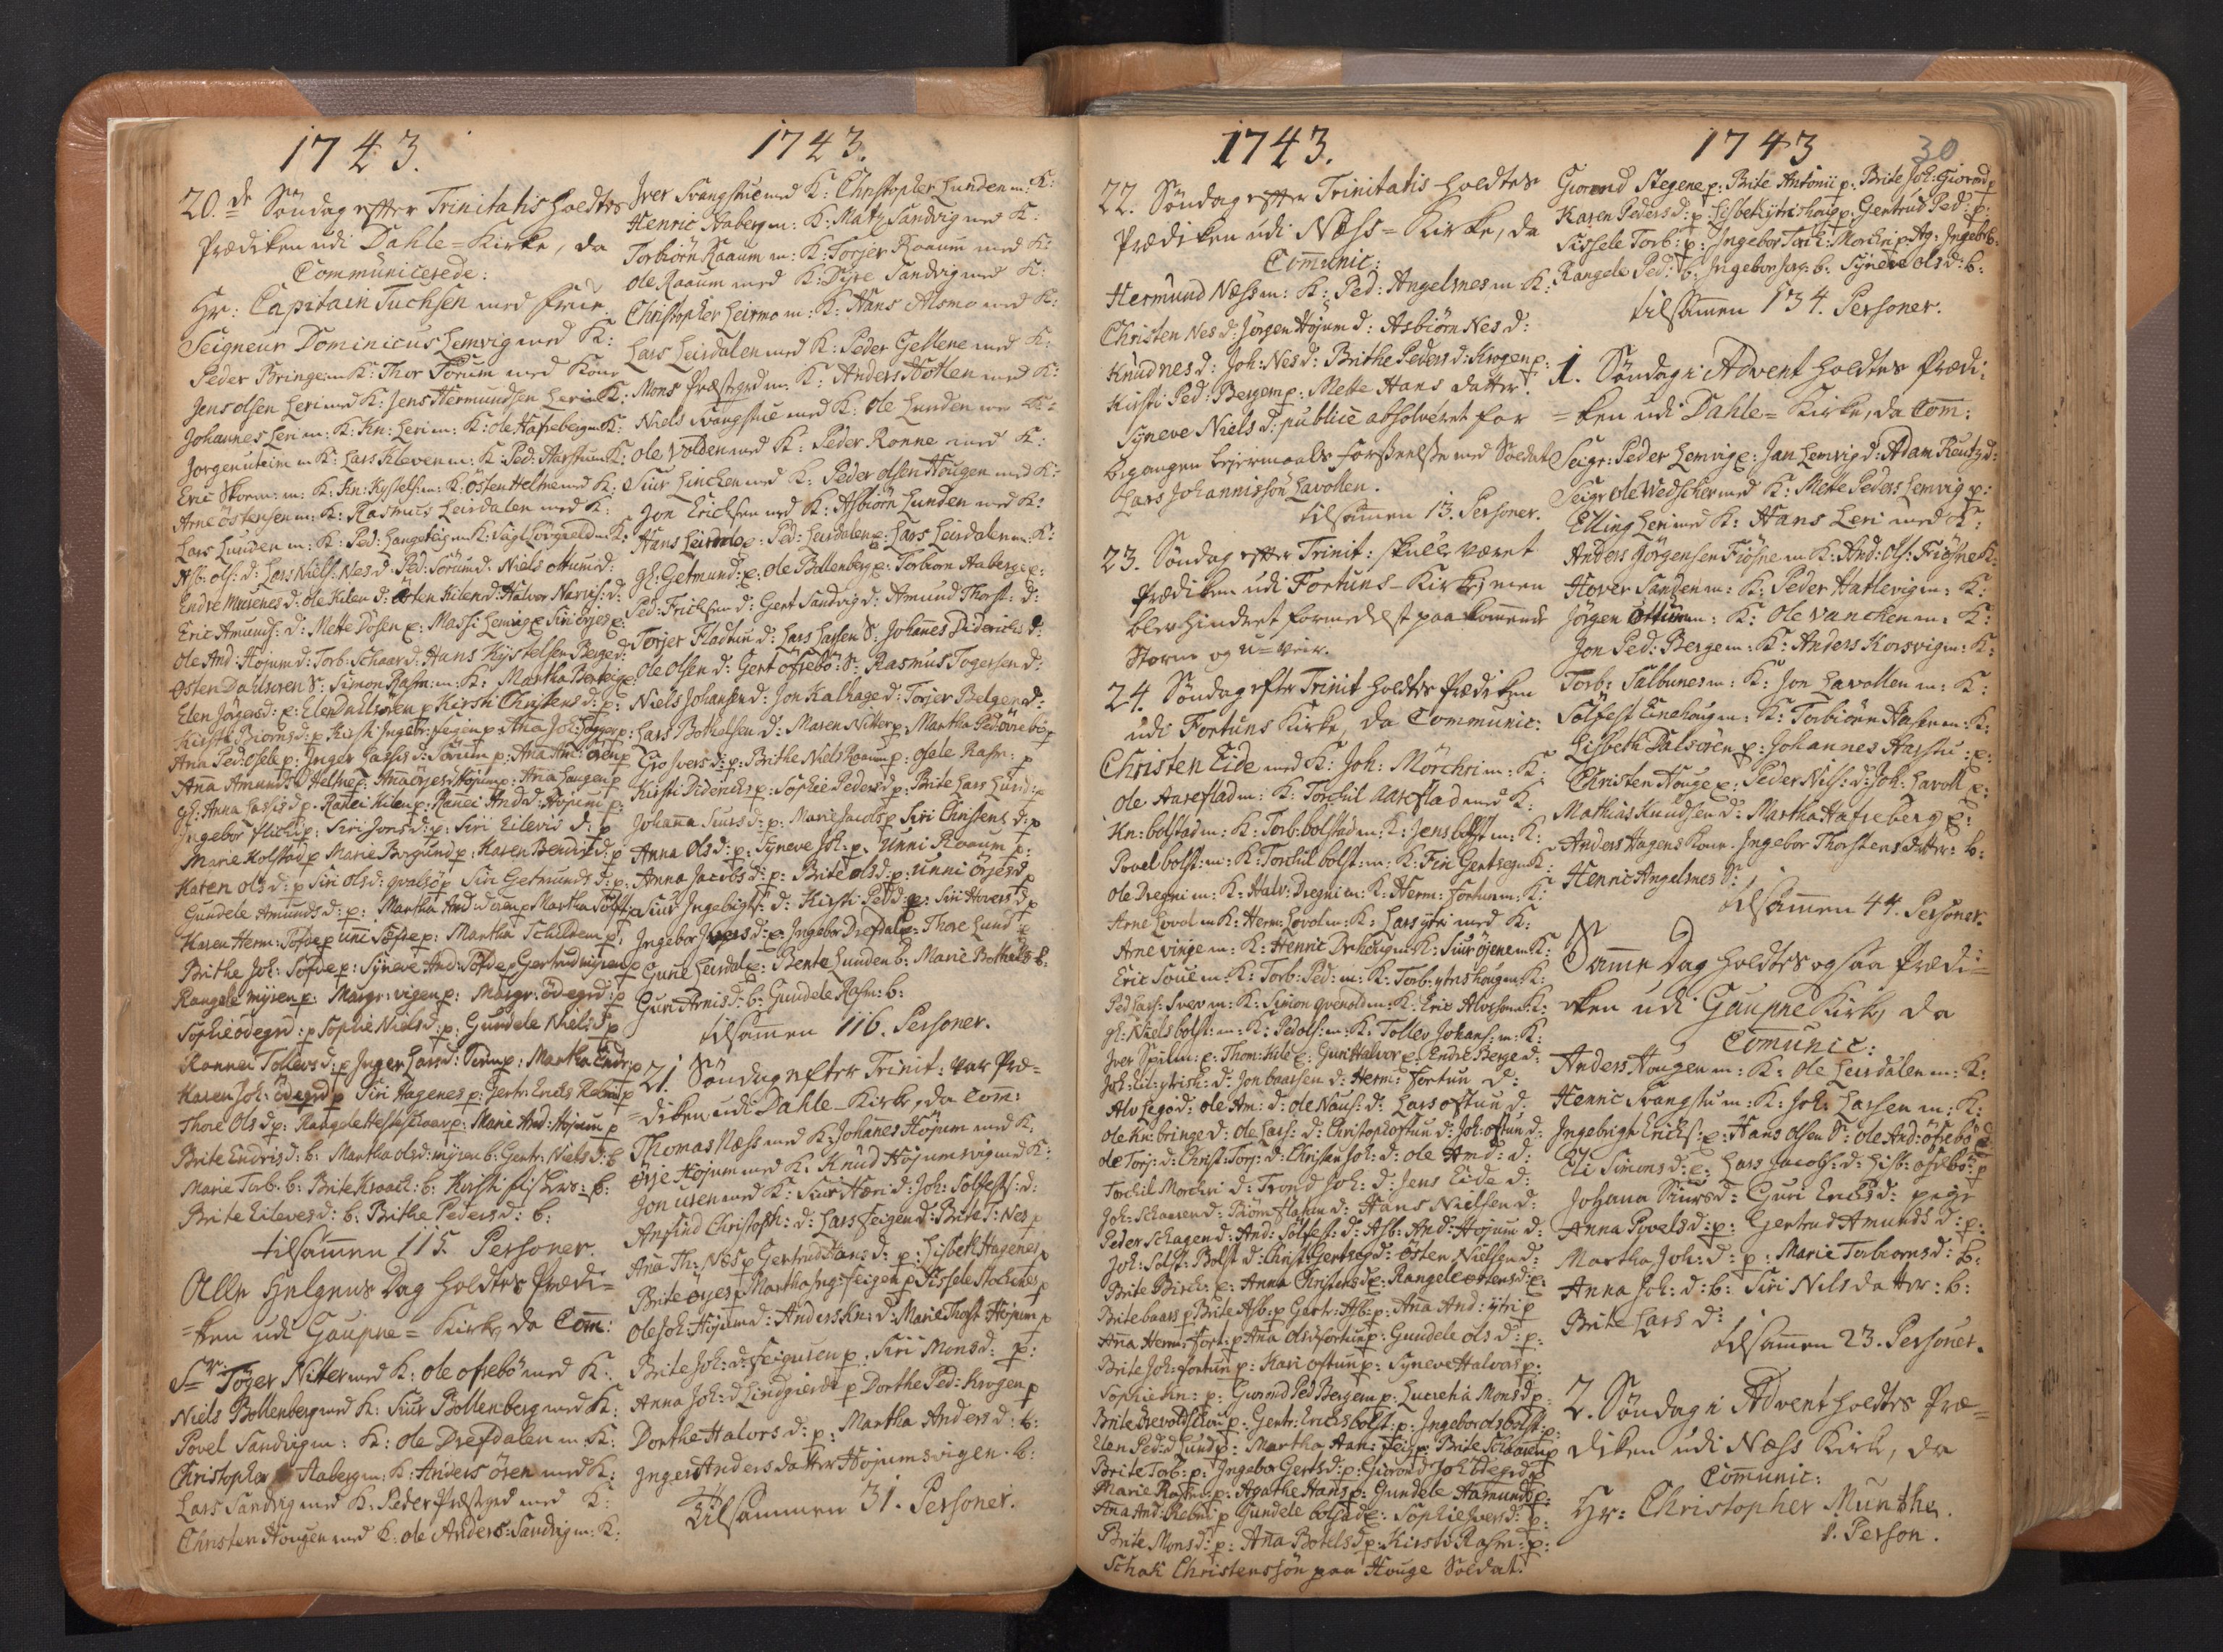 1743.
20.de Söndag efter Trinitatis holdtes
Prædiken udi Dahle=Kirke, da
Communicerede:
Hr: Capitain Tuchsen med Frue.
Seigneur Dominicus Lemvig med K:
Peder Bringe m K: Thor Sorum med Kone
Jens olsen Leri med K: Jens Hermundsen Leri K:
Johannes Leri m: K: Kn: Leri m: K: ole Hafreberg m K:
Jorgen uteim m K: Lars Kleven m: K: Ped: Harstum K:
Eric Skoren: m: K: Kn: Kystels: m: K: Østen Helme med K:
Arne östensen m: K: Rasmus Leirdalen med K:
Lars Lunden m: K: Ped: Hangesteig m K:
Asb: ols: d: Lars Niels: Nes d: Ped: Sörum d: Niels ottum d:
Endre d: ole Kilen d: östen Kilen d: Halvor d:
Eric Amunds: d: Mette Dösen p: Mads: Lemvig p: Siri örjes p:
ole And: Höjum d: Torb: Schaar d: Hans Kystelsen Berge d:
Østen Dahlsören S: Simon Rasm: m: K: Martha p:
Elen Jörgens d: p: Elen Dahlsören p Kirsti Christens d: p:
Kirsti Biorns d: p Kirsti Ingebr: Feigen p Ana Joh:
Ana Ped: p: Inger Lasses d: Sorum p: Ana
Anna Amunds d p: Anna örjes d Höjum p: Ana Haugen p
gl: Anna Lasses d p: Rannei Kilen p: Ranei And d: Höjum p:
Ingebor p: Siri Jons d: p: Siri Eilevis d: p
Marie Kolstad p Marie Borgund p: Karen Bendix d: p
Karen ols d: p Siri ols d: qvalsö p Siri Getmunds d: p:
Gundele Amunds d: p: Martha And p Martha
Karen Herm: Sofde p unni Søfde p: Martha p:
Brithe Joh: Sofde p: Syneve And: Sofde p Gertrud myren p
Rangele myren p: Margr: vigen p: Margr: öd-egrd: p
Sophie ödegrd: p Sophie Niels d: p: Gundele Niels d p
Rannei Tollevs d: p Inger Lars d: p: Martha Endr: p
Karen Joh: ödegrd p Siri Hagenes p: Gertr: Erichs p
Thore Ols d p: Rangele p: Marie And: Höjum p
Brite Endris d: b: Martha ols d: myren b: Gertr: Niels d: b
Marie Torb: b: Brite Kroack: b: Kirsti b:
Brite Eileves d: b: Brithe Peders d: b:
tilsamen 115. Personer.
Alle Helgens Dag holdtes Prædi=
=ken udi Gaupne=Kirke, da Com:
Sr: Töger Nitter med K: ole ofrebö med K:
Niels Bollenberg med K: Siur Bollenberg med K:
Povel Sandvig m: K: ole Drefdalen m K:
Christopher Aaberg m: K: Anders ören med K:
Lars Sandvig med K: Peder Præstgrd med K:
Christen Hougen med K: ole Anders: Sandvig m: K:
1743.
Iver Svangstue med K: Christopher Lunden m: K:
Henric Aaberg m: K: Matz Sandvig med K:
Torbiörn Raaum m: K: Torjer Raaum med K:
ole Raaum med K: Dyre Sandvig med K:
Christopher Leirmo m: K: Hans Alsmo med K:
Lars Leirdalen med K: Peder Gellene med K:
Mons Præstegrd m: K: Anders Molten med K:
Niels Svangstue med K: ole Lunden med K:
ole Volden med K: Peder Ronne med K:
Siur Lincken med K: Peder olsen Hougen med K:
Jon Erichsen med K: Asbiörn Lunden med K:
Hans Leirdale p: Ped: Leirdalen p: Lars Leirdalen m: K:
gl: Getmund: p: ole Bollenberg p: Torbiorn Aaberg p:
Ped: Erichsen d: Gert Sandvig d: Amund Thorst: d:
Torjer Fladtun d: Lars Larsen S: Johannes Diderichs d:
Ole Olsen d: Gert ofrebö S: Rasmus Togersen d:
Niels Johansen d: Jon Kalhage d: Torjer Bolgen d:
Lars Bothelsen d: Maren Nitter p: Martha p
Gro Ivers d: p: Brithe Niels Roaum p: Rasm: p
Kirsti Diderichs p: Sophie Peders d p: Brite Lars Lund: p
Johanna Siurs d: p: Marie Jacobs p Siri Christens d: p
Anna Ols d: p: Syneve Joh: p: Unni Roaum p:
Anna Jacobs d: p: Brite ols d: p: unni örjes d p
Siur Ingebrigts: d: Kirsti Ped d: p: Siri Hovers d p
Ingebor Ivers d: p: Ingebor Drefdal p: Thore Lund: p
Gune Leirdal p: Bente Lunden b: Marie Bothels b:
Guri Arnis d: b: Gundele Rasm: b:
tilsamen 116. Personer.
21. Söndag efter Trinit: var Præ=
=diken udi Dahle-Kirke, da Com:
Thomas Næss med K: Johanes Höjum med K:
Örje Höjum med K: Knud Höjumsvig med K:
Jon uren med K: Siur d: Joh: Solfests: d:
Ansfind Christoph: d: Lars Feigen d: Brite T: Nes p
Ana Th: Næs p Gertrud Hans d: p: Lisbeth Hagenes p
Brite øyes p Martha Ing: feigen p Sissele p
Ole Joh: Höjum d: Anders Kn: d: Marie Thost Höjum p
Brite Joh: d: feiguren p: Siri Mons d: p:
Anna Joh: d Lindgierde p Dorthe Ped: Krogen p
Dorthe Halvors d: p: Martha Anders d: b:
Inger Anders datter Höjumsvigen b:
Tilsammen 31. Personer.
1743.
22. Söndag efter Trinitatis holdtes
Prædiken udi Næss=Kirke, da
Comunic:
Hermund Næss m: K: Ped: Angelsnes m K:
Christen Nes d: Jörgen Höjum d: Asbiörn Nes d:
Knud nes d: Joh: Nes d: Brithe Peders d: Krogen p:
Kirsti Ped: Bergem p: Mette Hans datter:
Syneve Niels d: publice absolveret for
begangen Leiermaals forseelse med Soldat
Lars Johannisson Lavollen.
tilsamen 13. Personer.
23. Söndag efter Trinit: skulle været
Prædiken udi Fortuns-Kirke, men
blev hindret formedelst paakomende
Storm og u=veir.
24. Söndag efter Trinit holdtes Prædiken
udi Fortuns Kirke, da Communic:
Christen Eide med K: Joh: Mörchri m: K:
Ole Aareflad m: K: Torchil Aareflad med K:
Kn: bolstad m: K: Torb: bolstad m: K: Jens bolst m: K:
Povel bolst: m: K: Torchil bolst: m: K: Fin Gertsegn K:
Ole Dregni m: K: Halv: Dregni m: K: Herm: Fortun m: K:
Arne Lovol m K: Herm: Lovol m: K: Lars ytri med K:
Arne vinge m: K: Henric m: K: Siur öjene m K:
Eric Soue m: K: Torb: Ped: m: K: Torb: ytreshougen K:
Ped Lars: Svev m: K: Simon m: K: Eric Alvesson K:
gl: Niels bolst: m: K: Ped ols: m: K: Tollev Johans: m: K:
Iver Spilm: p: Thom: Kile p: Guri Halvor p: Endre Berge d:
Joh: Eil: d: Jon baarsen d: Herm: Fortun d:
Alv Lego d: ole Am: d: ole d: Lars oftun d:
ole Kn: bringe d: ole Lars: d: Christoph oftun d: Joh: oftun d:
ole Torj: d: Christ: Torj: d: Christen Joh: d: ole Amd: d:
Torchil Morchri d: Trond Joh: d: Jens Eide d:
Joh: Schaaren d: d: Hans Nielsen d:
Peder Schagen d: And: Sölfest: d: Asb: And: Höjum d:
Joh: Solst: Bolst d: Christ: Gertsegd: östen Nielsen d:
Brite Birch: p: Anna Christens d p: Rangele östens d: p:
Brite baars p Brite Asb: p Gertr: Asb: p: Ana And: ytri p
Ana Herm: Fort: p Ana ols d fortun p: Gundele ols d: p:
Brite Joh: fortun p: Kari oftun p: Syneve Halvors p:
Sophie Kn: p: Guronnd Ped Bergem p: Lucretia Mons d p:
Brite p: Gertr: Erichs bolst: p: Ingebor ols bolst: p:
Elen Ped: d Lund p: Martha p Brite Schaaren p
Brite Torb: p: Ingebor Gerts d: p: Giorond Joh: ödegrd p
Marie Rasm: p: Agathe Hans p: Gundele Hamunds p:
Ana And: p Gundele bolstad p: Sophie Ivers d: p:
Brite Mons d: p: Ana Botels d p: Kirsti Rasm: p:
Schak Christenssön paa Houge Soldat:
1743
30
Giorond Stegene p: Brite Antonii p: Brite Joh: Giorond p
Karen Peders d: p: Lisbet ytrishoug p: Gertrud Ped: p:
Sissele Torb: p: Ingebor Torch: Morchri p: Ag: Ingeb b:
Rangele Ped: b: Ingebor Jorg: b: Syneve ols d: b:
tilsamen 134. Personer.
1. Söndag i Advent holdtes Prædi:
=ken udi Dahle=Kirke, da Com:
Seigr: Peder Lemvig p: Jan Lemvig d: Adam Reutz d:
Seigr ole Wedscher med K: Mette Peders Lemvig p:
Elling Leri med K: Hans Leri med K:
Anders Jörgensen Fiösne m K: And: Ols: Fiösne K:
Hover Sanden m: K: Peder Hatlevig m: K:
Jörgen Ottum m: K: Ole Vancken m: K:
Jon Ped: Berge m: K: Anders Korsvig m: K:
Torb: Salbunes m: K: Jon Lavollen m: K:
Solfest Einehoug m: K: Torbiörn Hasle m: K:
Lisbeth Dalsören p: Johannes Harstu: p:
Christen Houge p: Peder Nils: d: Joh: Lavoll p:
Mathias Knudsen d: Martha Hafreberg p:
Anders Hagens Kone. Ingebor Thorstens datter: b:
Henric Angelsnes d:
tilsamen 44. Personer.
Same Dag holdtes ogsaa Prædi=
=ken udi Gaupne Kirke, da
Comunic:
Anders Hougen m: K: Ole Leirdalen m: K:
Henric Svangstu m: K: Joh: Larsen m: K:
Ingebrigt Erichs: p: Hans olsen S: ole And: ofrebö d:
Eli Simons d: p: Lars Jacobs: d: Lisb: ofrebö: p
Johana Siurs d: Guri Erichs d: pige
Anna Povels d: p: Gertrud Amunds d: p:
Martha Joh: d: p: Marie Torbiorns d: b:
Anna Joh: d: b: Siri Nils datter: b:
Brite Lars d:
tilsamen 23. Personer.
2. Söndag i Advent holdtes Præ=
diken udi Næss Kirke, da
Comunic:
Hr: Christopher Munthe.
1. Person.